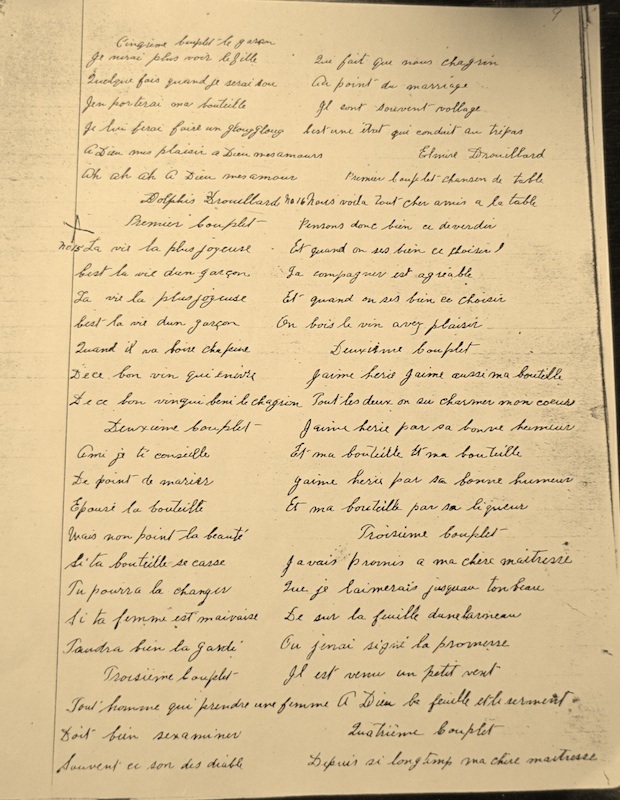 9
Cinqieme Couplet le garcon
Je nirai plus voir le fille
Quelque fois quand je serai sou
Jen porterai ma bouteille
Je lui ferai faire un glougloug
A Dieu mes plaisir a Dieu mes amours
Ah ah ah A Dieu mes amour
Dolphis Drouillard
X
Premier Couplet
No 15 La vie la plus joyeuse
Cest la vie dun garçon
La vie la plus joyeuse
Cest la vie dun garçon
Quand il va boire chopine
De ce bon vin qui enivre
De ce bon vin qui beni le chagrin
Deuxieme Couplet
Ami je ti conseille
De point de marier
Epouse la bouteille
Mais non point la beauté
Si ta bouteille se casse
Tu pourra la changer
Si ta femme est maivaise
Faudra bien la garde
Troisième Couplet
Tout homme qui prendre une femme
Doit bien sexaminer
Souvent ci son des diable
Qui fait que nous chagrin
Au point du marriage
Il sont souvent vollage
Cest une état qui conduit au trépas
Elmire Drouillard
Premier Couplet chanson de table
No 16 Nous voila tout cher amis a la table
Pensons donc bien ce deverdir
Et quand on ses bien ce choisir
Sa compagner est agréable
Et quand on ses bien ce choisir
On bois le vin avez plaisir
Deuxième Couplet
Jaime herie jaime aussi ma bouteille
Tout les deux on su charmer mon coeur
Jaime herie par sa bonne humeur
Et ma bouteille Et ma bouteille
Jaime herie par sa bonne humeur
Et ma bouteille par sa liqueur
Troisième Couplet
Javais promis a ma chere maitresse
Que je laimerais jusquau tombeau
De sur la feuille dune
Ou jenai signé la promesse
Il est venu un petit vent
A Dieu la feuille et le serment
Quatriéme Couplet
Depuis si longtemp ma chere maitresse